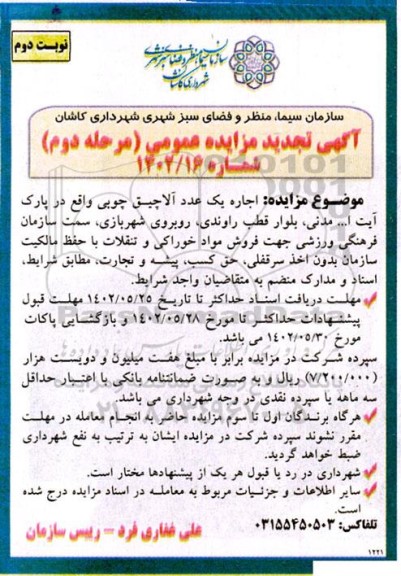 نوبت دوم
سازمان سیما، منظر و فضای سبز شهری
شهرداری کاشان
سازمان سیما، منظر و فضای سبز شهری شهرداری کاشان
آگهی تجدید مزایده عمومی (مرحله دوم)
شماره ۱۴۰۲/۱۶
موضوع مزایده: اجاره یک عدد آلاچیق چوبی واقع در پارک
آیت ا... مدنی، بلوار قطب راوندی، روبروی شهربازی، سمت سازمان
فرهنگی ورزشی جهت فروش مواد خوراکی و تنقلات با حفظ مالکیت
سازمان بدون اخذ سرقفلی، حق کسب، پیشه و تجارت، مطابق شرایط،
اسناد و مدارک منضم به متقاضیان واجد شرایط.
مهلت دریافت اسناد حداکثر تا تاریخ ۱۴۰۲/۰۵/۲۵ مهلت قبول
پیشنهادات حداکثر تا مورخ ۱۴۰۲/۰۵/۲۸ و بازگشایی پاکات
مورخ ۱۴۰۲/۰۵/۳۰ می باشد.
سپرده شرکت در مزایده برابر با مبلغ هفت میلیون و دویست هزار
(۷/۲۰۰/۰۰۰) ریال و به صورت ضمانتنامه بانکی با اعتبار حداقل
سه ماهه یا سپرده نقدی در وجه شهرداری می باشد.
هرگاه برندگان اول تا سوم مزایده حاضر به انجام معامله در مهلت
مقرر نشوند سپرده شرکت در مزایده ایشان به ترتیب به نفع شهرداری
ضبط خواهد گردید.
شهرداری در رد یا قبول هر یک از پیشنهادها مختار است.
سایر اطلاعات و جزئیات مربوط به معامله در اسناد مزایده درج شده
است.
تلفاکس: ۰۳۱۵۵۴۵۰۵۰۳
علی غفاری فرد – رییس سازمان
۱۲۲۱